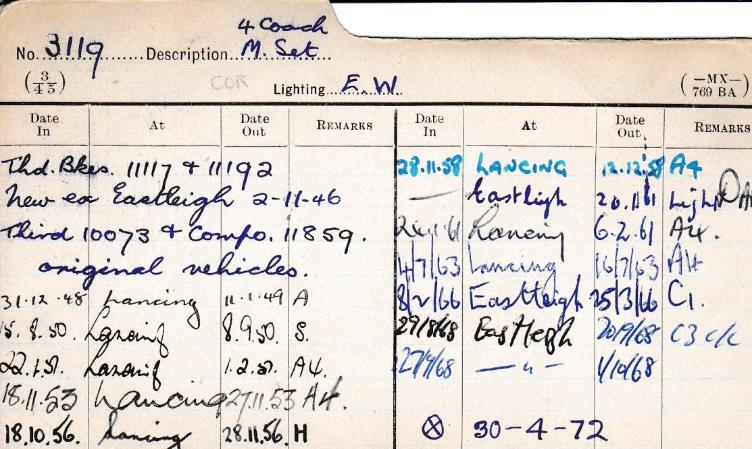 4 Coach
No. 3119 Description M. Set
(3/45) COR Lighting E.W. (—MX— 769 BA)
Date In At Date Out REMARKS
Thd. Bkes. 11117 + 11192
New ex Eastleigh 2-11-46
Third 10073 & Compo. 11859.
original vehicles.
31.12.48 Lancing 11.1.49 A
15.8.50. Lancing 8.9.50. S.
22.1.51. Lancing 1.2.51. A4.
18.11.53 Lancing 27.11.53 A4.
18.10.56. Lancing 28.11.56. H
Date In At Date Out REMARKS
28.11.58 LANCING 12.12.58 A4
— Eastleigh 20.1.61 Light
Lancing 6.2.61 A4.
4/7/63 Lancing 16/7/63 A4
8/2/66 Eastleigh 25/3/66 C1.
29/8/68 Eastleigh 20/9/68 C3 c/c
27/9/68 — " — 4/10/68
⊗ 30-4-72